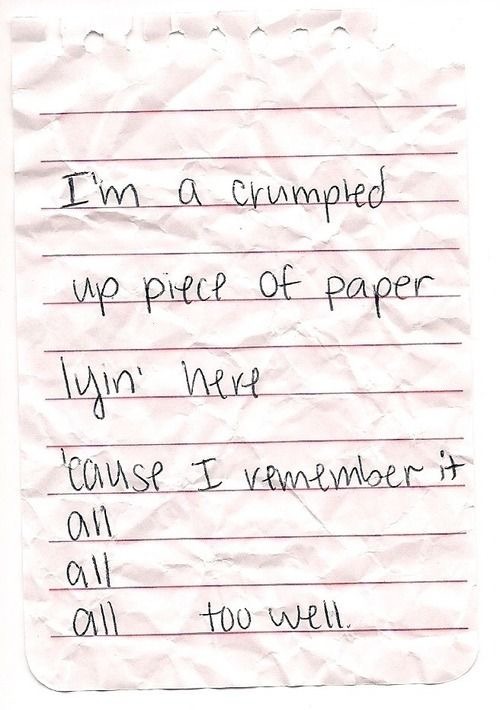 I'm a crumpled
up piece of paper
lyin' here
'cause I remember it
all
all
all too well.